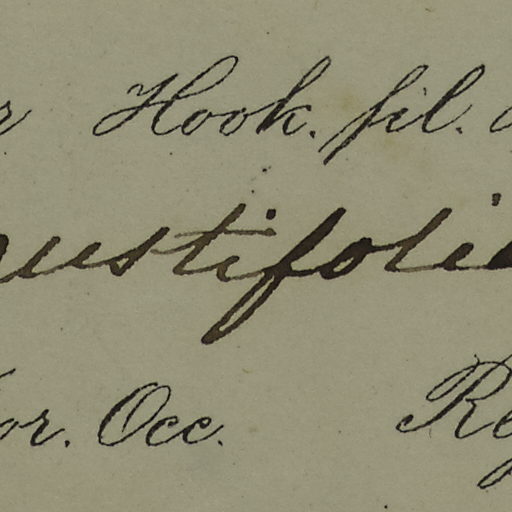 r Hook. fil.
ustifolia
or. Occ. Re